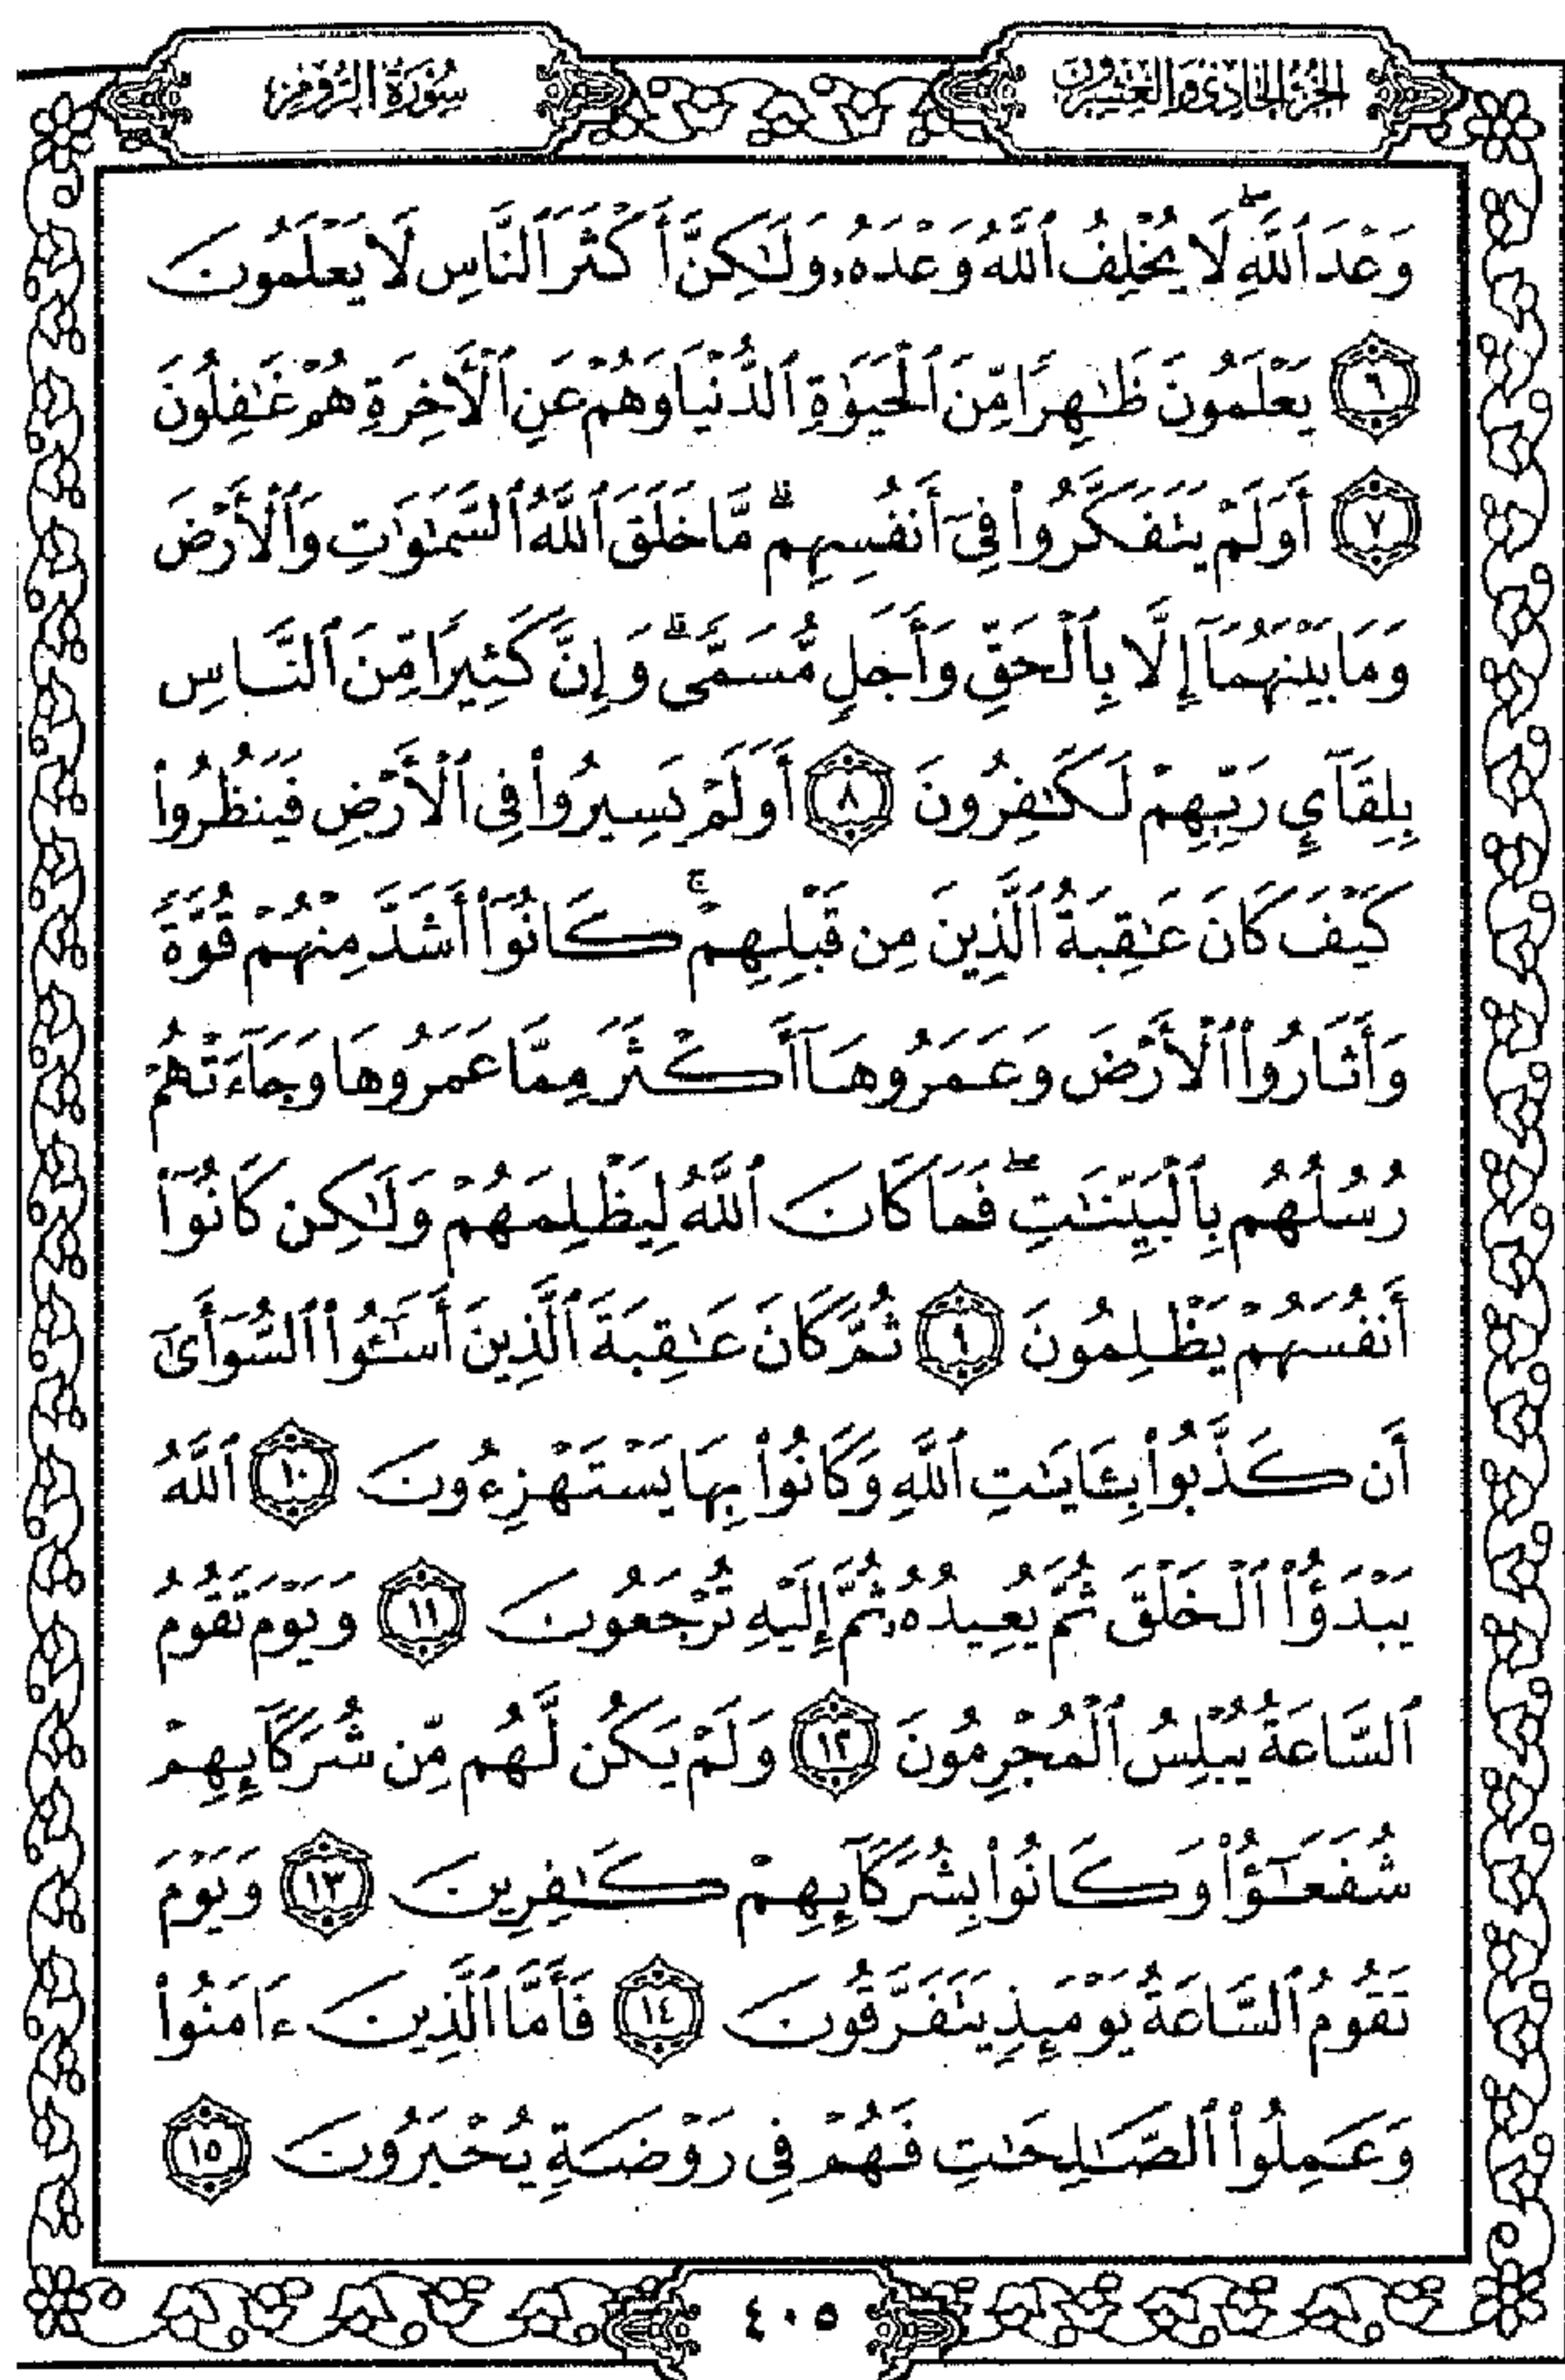 الجزء الحادي والعشرون
سُورَةُ الرُّومِ
وَعْدَ ٱللَّهِ ۖ لَا يُخْلِفُ ٱللَّهُ وَعْدَهُۥ وَلَٰكِنَّ أَكْثَرَ ٱلنَّاسِ لَا يَعْلَمُونَ
﴿٦﴾ يَعْلَمُونَ ظَٰهِرًا مِّنَ ٱلْحَيَوٰةِ ٱلدُّنْيَا وَهُمْ عَنِ ٱلْءَاخِرَةِ هُمْ غَٰفِلُونَ
﴿٧﴾ أَوَلَمْ يَتَفَكَّرُوا۟ فِىٓ أَنفُسِهِم ۗ مَّا خَلَقَ ٱللَّهُ ٱلسَّمَٰوَٰتِ وَٱلْأَرْضَ
وَمَا بَيْنَهُمَآ إِلَّا بِٱلْحَقِّ وَأَجَلٍ مُّسَمًّى ۗ وَإِنَّ كَثِيرًا مِّنَ ٱلنَّاسِ
بِلِقَآئِ رَبِّهِمْ لَكَٰفِرُونَ ﴿٨﴾ أَوَلَمْ يَسِيرُوا۟ فِى ٱلْأَرْضِ فَيَنظُرُوا۟
كَيْفَ كَانَ عَٰقِبَةُ ٱلَّذِينَ مِن قَبْلِهِمْ ۚ كَانُوٓا۟ أَشَدَّ مِنْهُمْ قُوَّةً
وَأَثَارُوا۟ ٱلْأَرْضَ وَعَمَرُوهَآ أَكْثَرَ مِمَّا عَمَرُوهَا وَجَآءَتْهُمْ
رُسُلُهُم بِٱلْبَيِّنَٰتِ ۖ فَمَا كَانَ ٱللَّهُ لِيَظْلِمَهُمْ وَلَٰكِن كَانُوٓا۟
أَنفُسَهُمْ يَظْلِمُونَ ﴿٩﴾ ثُمَّ كَانَ عَٰقِبَةَ ٱلَّذِينَ أَسَٰٓـُٔوا۟ ٱلسُّوٓأَىٰٓ
أَن كَذَّبُوا۟ بِـَٔايَٰتِ ٱللَّهِ وَكَانُوا۟ بِهَا يَسْتَهْزِءُونَ ﴿١٠﴾ ٱللَّهُ
يَبْدَؤُا۟ ٱلْخَلْقَ ثُمَّ يُعِيدُهُۥ ثُمَّ إِلَيْهِ تُرْجَعُونَ ﴿١١﴾ وَيَوْمَ تَقُومُ
ٱلسَّاعَةُ يُبْلِسُ ٱلْمُجْرِمُونَ ﴿١٢﴾ وَلَمْ يَكُن لَّهُم مِّن شُرَكَآئِهِمْ
شُفَعَٰٓؤُا۟ وَكَانُوا۟ بِشُرَكَآئِهِمْ كَٰفِرِينَ ﴿١٣﴾ وَيَوْمَ
تَقُومُ ٱلسَّاعَةُ يَوْمَئِذٍ يَتَفَرَّقُونَ ﴿١٤﴾ فَأَمَّا ٱلَّذِينَ ءَامَنُوا۟
وَعَمِلُوا۟ ٱلصَّٰلِحَٰتِ فَهُمْ فِى رَوْضَةٍ يُحْبَرُونَ ﴿١٥﴾
٤٠٥